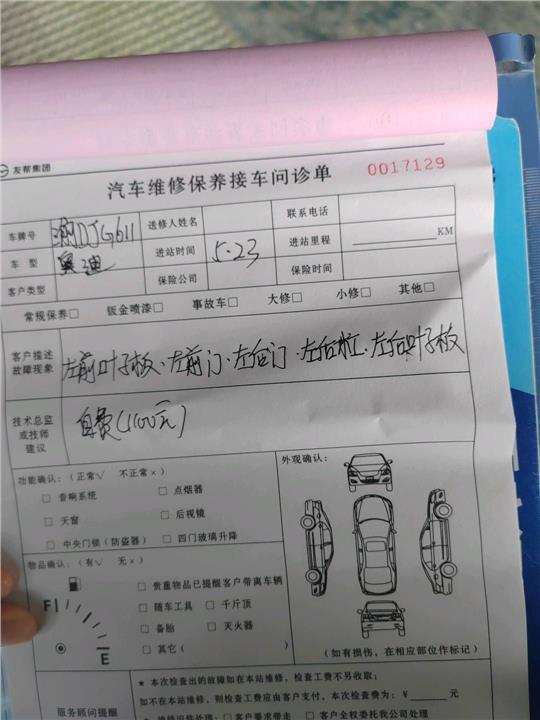 友帮集团
汽车维修保养接车问诊单 0017129
车牌号 湘DJG611 送修人姓名 联系电话
车 型 奥迪 进站时间 5.23 进站里程 KM
客户类型 保险公司 保险时间
常规保养□ 钣金喷漆□ 事故车□ 大修□ 小修□ 其他□
客户描述
故障现象
左前叶子板·左前门·左后门·左右杠·左后叶子板
技术总监
或技师
建议
自费(1100元)
功能确认:(正常√ 不正常×) 外观确认:
□ 音响系统 □ 点烟器
□ 天窗 □ 后视镜
□ 中央门锁(防盗器) □ 四门玻璃升降
物品确认:(有√ 无×)
□ 贵重物品已提醒客户带离车辆
□ 随车工具 □ 千斤顶
□ 备胎 □ 灭火器
□ 其它( )
F
E
(如有损伤,在相应部位作标记)
服务顾问提醒
★ 本次检查出的故障如在本站维修,检查工费不另收取;
如不在本站维修,则检查工费应由客户支付,本次费为:¥ 元
★ 维修旧件处理:□ 客户要求带走 □ 客户全权委托我公司处理